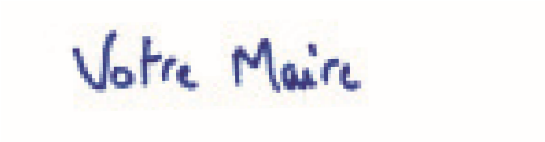 Votre Maire